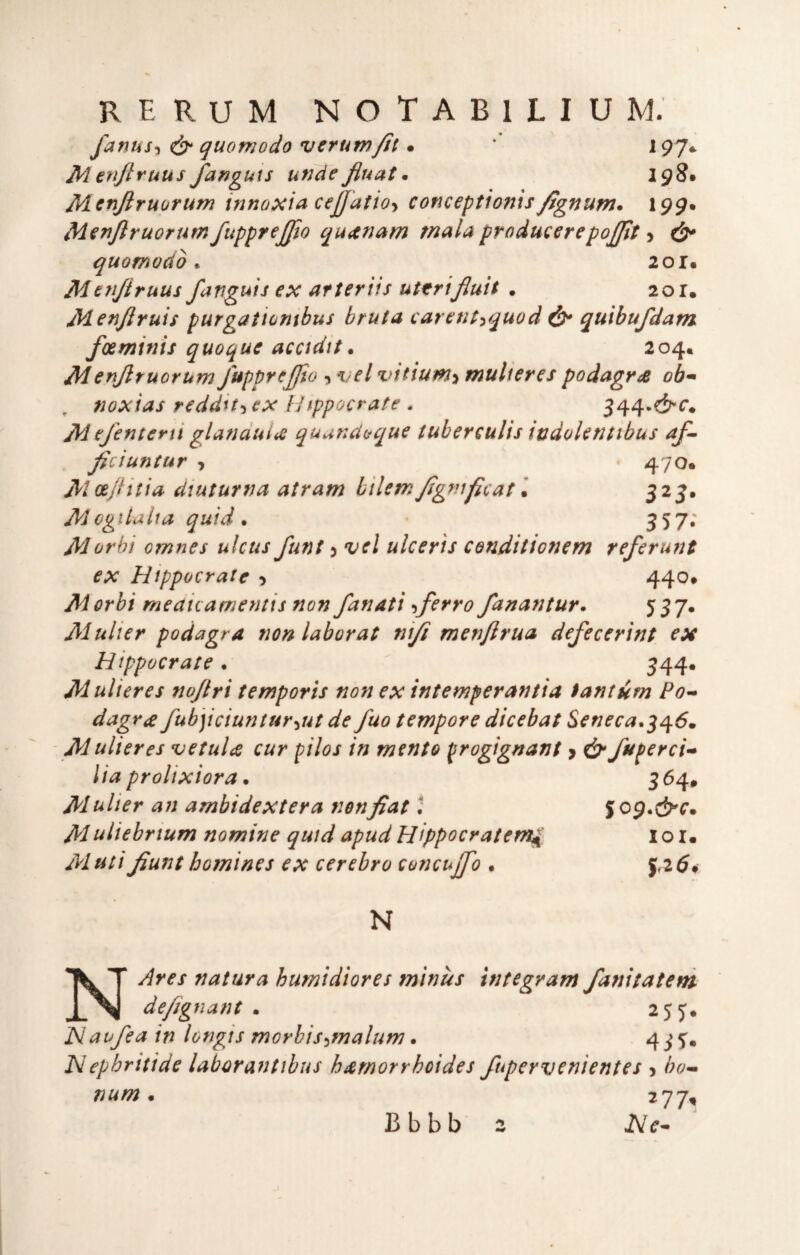 RERUM NOTABILIUM.
ſanus, & quomodo verum ſit. 197.
Menſtruus ſanguis unde fluat. 198.
Menſtruorum innoxia ceſſatio, conceptionis ſignum. 199.
Menſtruorum ſuppreſſio quænam mala producere poſſit, &
quomodo. 201.
Menſtruus ſanguis ex arteriis uteri fluit. 201.
Menſtruis purgationibus bruta carent, quod & quibuſdam
fœminis quoque accidit. 204.
Menſtruorum ſuppreſſio, vel vitium, mulieres podagræ ob-
noxias reddit, ex Hippocrate. 344.&c.
Meſenterii glandulæ quandoque tuberculis indolentibus af-
ficiuntur, 470.
Mœſtitia diuturna atram bilem ſignificat. 323.
Mogilalia quid. 357.
Morbi omnes ulcus ſunt, vel ulceris conditionem referunt
ex Hippocrate, 440.
Morbi medicamentis non ſanati, ferro ſanantur. 537.
Mulier podagra non laborat niſi menſtrua defecerint ex
Hippocrate. 344.
Mulieres noſtri temporis non ex intemperantia tantúm Po-
dagræ ſubjiciuntur, ut de ſuo tempore dicebat Seneca. 346.
Mulieres vetulæ cur pilos in mento progignant, & ſuperci-
lia prolixiora. 364.
Mulier an ambidextera non fiat. 509.&c.
Muliebrium nomine quid apud Hippocratem. 101.
Muti fiunt homines ex cerebro concuſſo. 526.
N
NAres natura humidiores minùs integram ſanitatem
deſignant. 255.
Nauſea in longis morbis, malum. 435.
Nephritide laborantibus hæmorrhoides ſupervenientes, bo-
num. 277.
Bbbb 2 Ne-